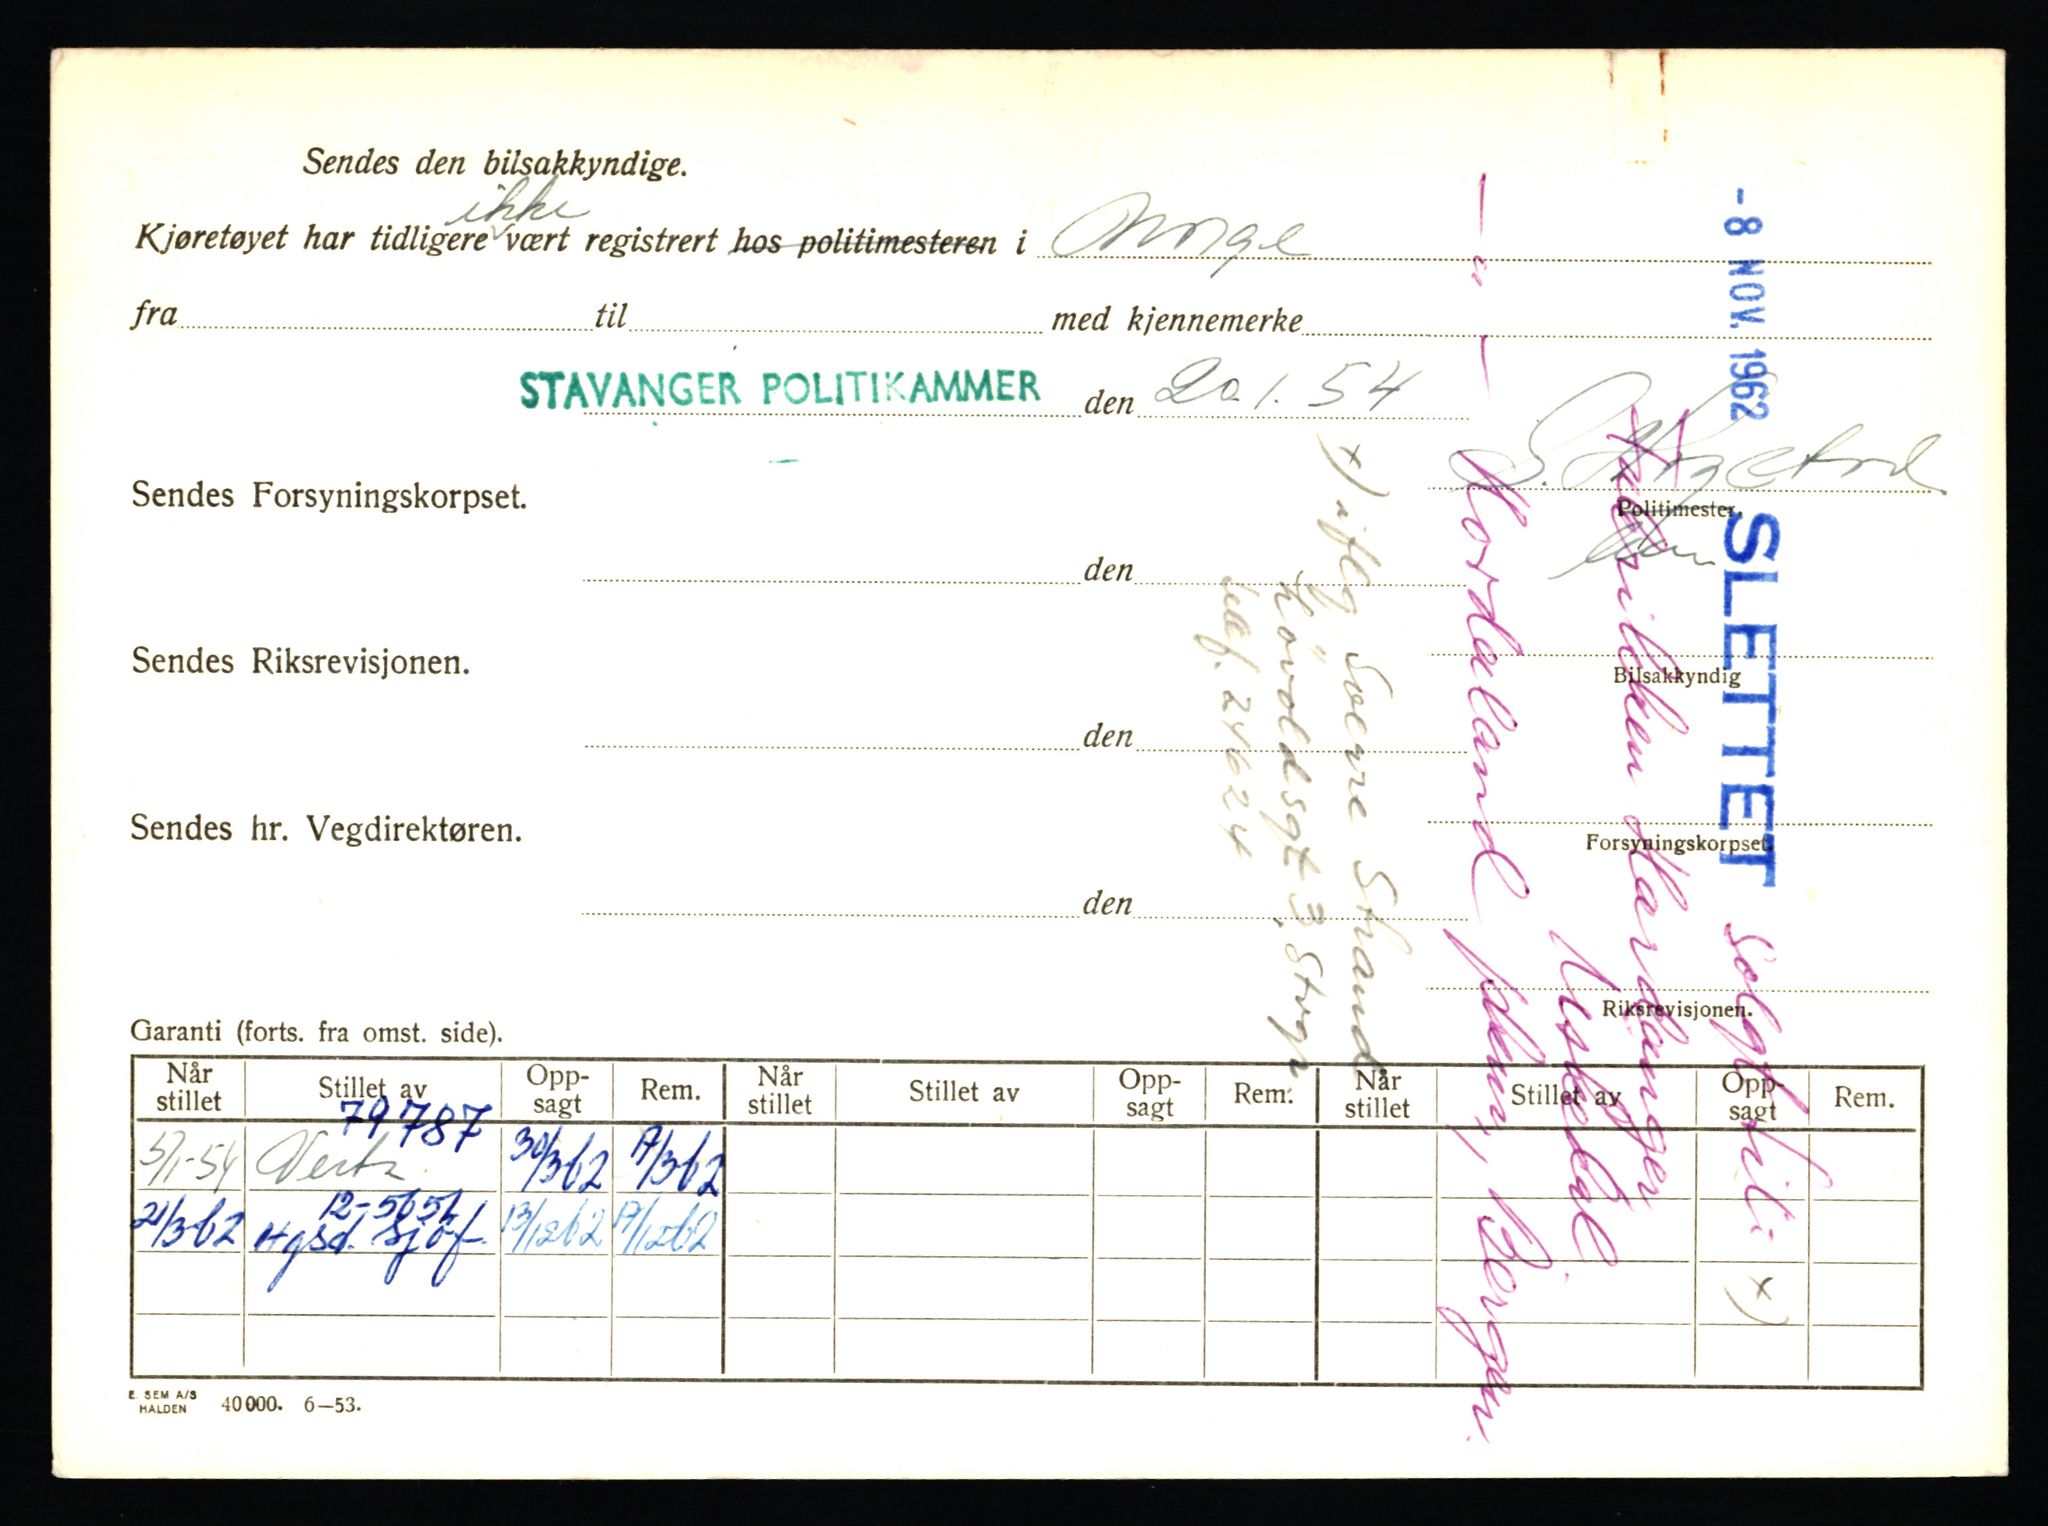 Sendes den bilsakkyndige.
ikke
Kjøretøyet har tidligere vært registrert hos politimesteren i Norge
fra til med kjennemerke
STAVANGER POLITIKAMMER den 20.1.54
Politimester.
Sendes Forsyningskorpset.
den
Bilsakkyndig
Sendes Riksrevisjonen.
den
Forsyningskorpset.
Sendes hr. Vegdirektøren.
den
Riksrevisjonen.
Garanti (forts. fra omst. side).
Når stillet Stillet av Opp- sagt Rem. Når stillet Stillet av Opp- sagt Rem. Når stillet Stillet av Opp- sagt Rem.
79787
5/1-54 Vesta 30/3-62 17/3-62
12-5654
21/3-62 Hgsd. Sjöf. 13/12 62 17/12 62
E. SEM A/S
HALDEN 40000. 6—53.
-8 NOV. 1962
SLETTET Solgt til: x)
Hardanger
Uskedal
— " — Hordaland pkm, Bergen.
x) iflg Sverre Strand
Hövoldsgt 3, Stvgr
telf. 24624